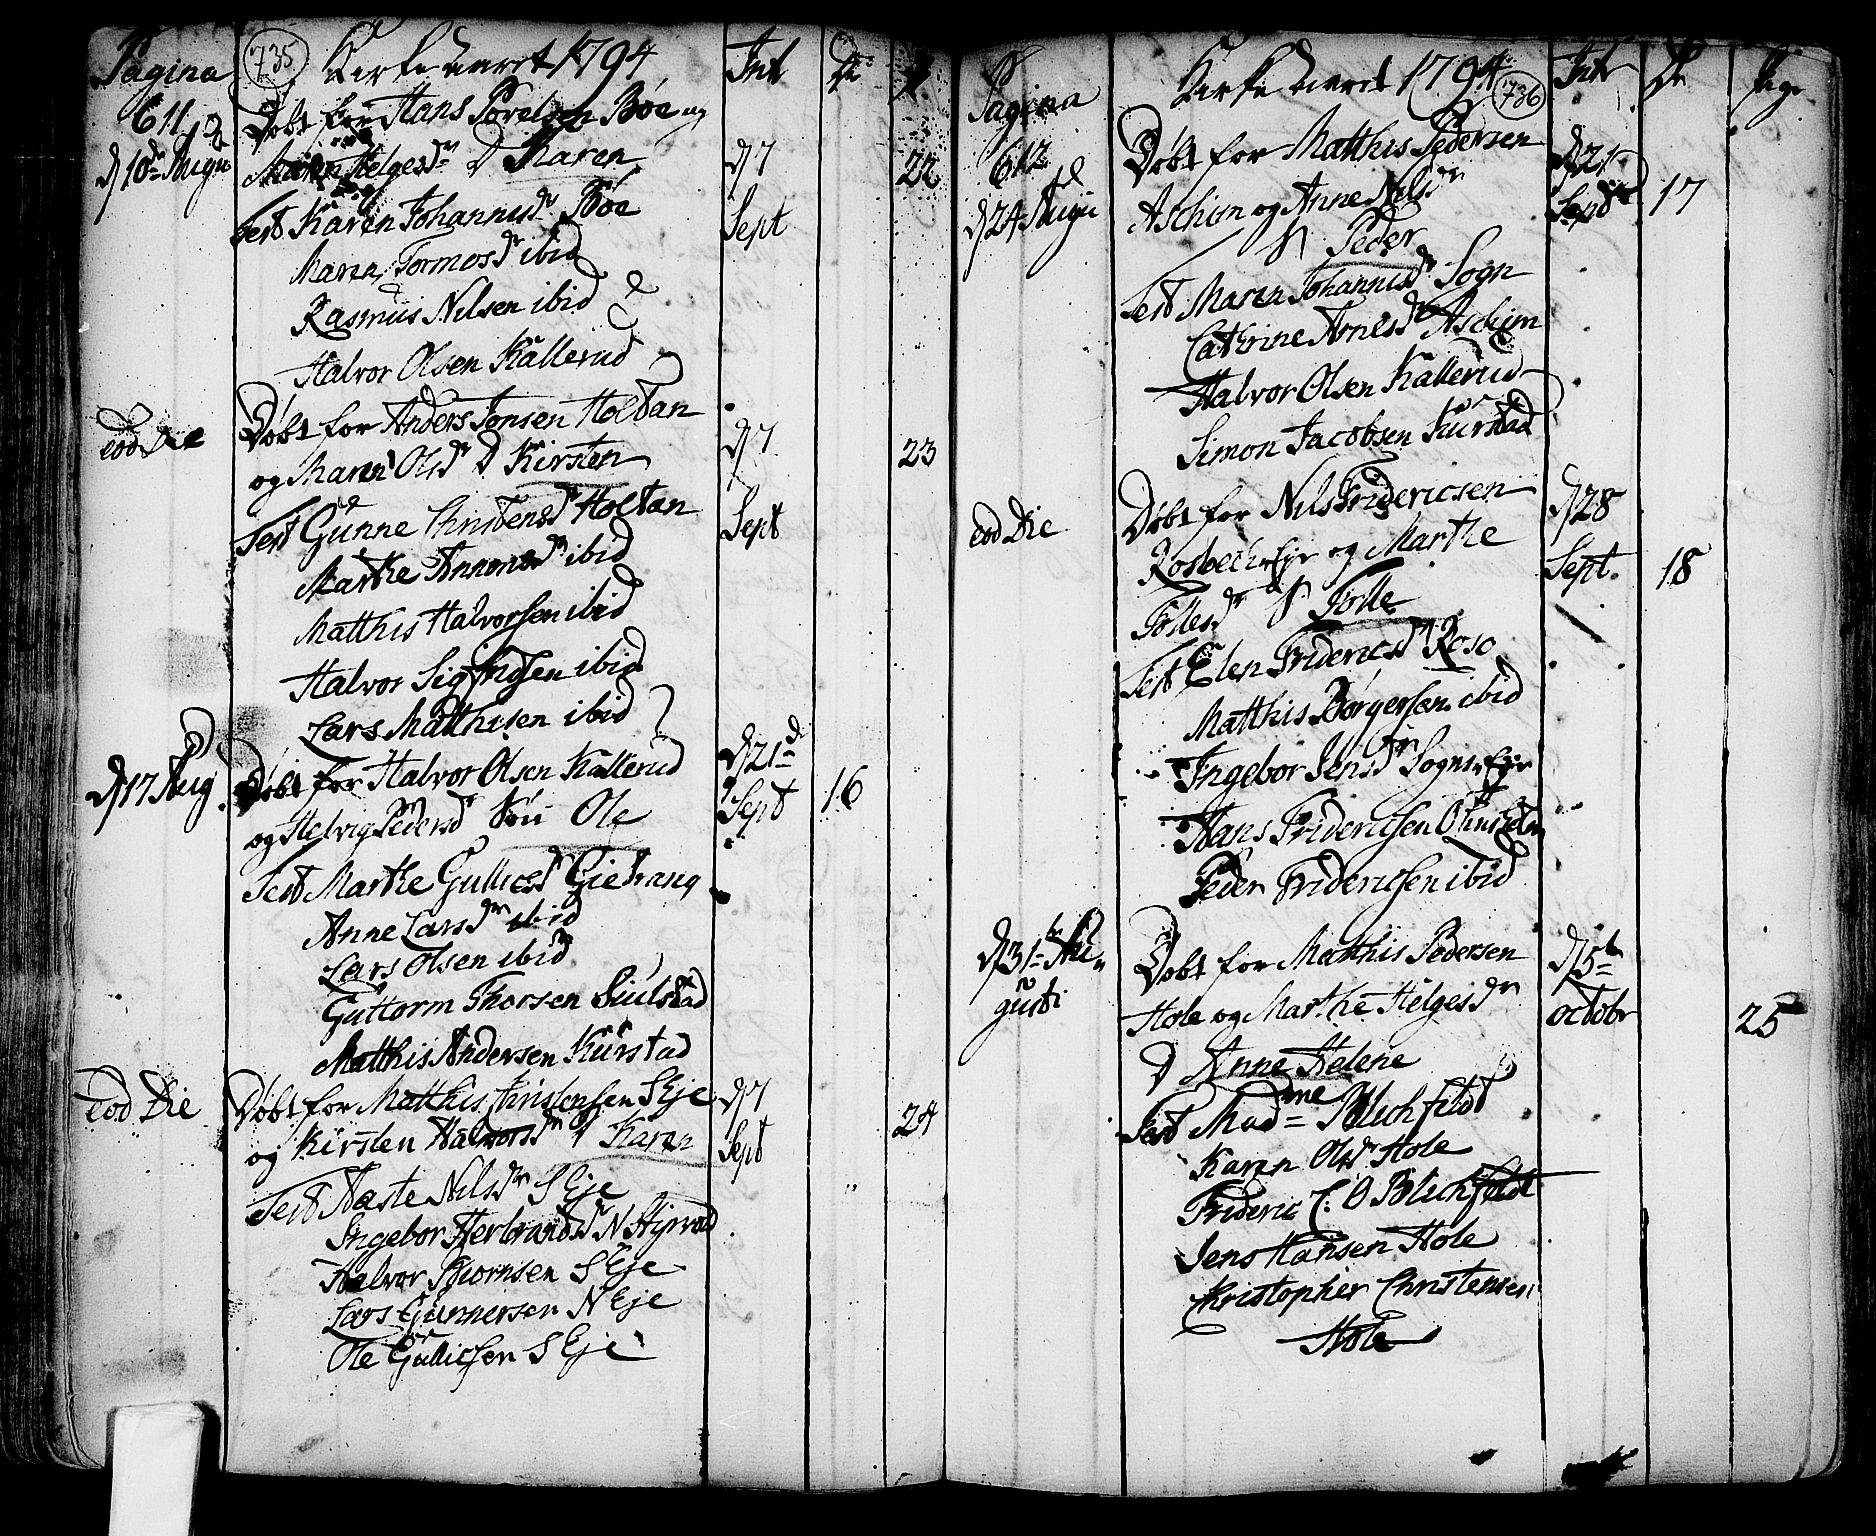 Pagina
611
d 10de Augu
735
Kirke Aaret 1794
Int
De
P
Døbt for Hans Povelsen Bøe og
Maren Helgesdr D Karen
d 7
Sept
22
Test Karen Johannisdr Bøe
Maren Tormosdr ibid
Rasmus Nilsen ibid
Halvor Olsen Kallerud
eod Die
Døbt for Anders Jonsen Holtan
og Maren Olsdr D Kirsten
d 7
Sept
23
Test Gunne Christensdr Holtan
Marthe Amonsdr ibid
Matthis Halvorsen ibid
Halvor Sigfridsen ibid
Lars Matthisen ibid
d 17 Aug
Døbt for Halvor Olsen Kallerud
og Helvig Pedersd Søn Ole
d 21de
Sept
16
Test Marthe Gullicsdr Gietrang
Anne Larsdr ibid
Lars Olsen ibid
Guttorm Thorsen Siulstad
Matthis Andersen Kurstad
eod Die
Døbt for Matthis Christensen S Eje
og Kirsten Halvorsdr D Karen
d 7
Sept
24
Test Aaste Nilsdr S Eje
Ingebor Herbrandsdr N Stjrvad
Halvor Biornsen S Eje
Lars Gunnersen N Eje
Ole Gullicsen S Eje
Pagina
612
d 24 Augu
Kirke Aaret 1794
736
Int
De
Pige
Døbt for Matthis Pedersen
Aschim og Anne Nilsdr
S Peder
d 21
Septbr
17
Test Maren Johannisdr Sogn
Cathrine Arnesdr Aschim
Halvor Olsen Kallerud
Simon Jacobsen Kurstad
eod Die
Døbt for Nils Fridericsen
Rosbech Eje og Marthe
Tollesdr S Tolle
d 28
Sept.
18
Test Elen Fridericsdr Roso
Matthis Børgersen ibid
Ingebor Jensdr Sogns Eje
Hans Fridericsen
Peder Fridericsen ibid
d 31te Au=
gusti
Døbt for Matthis Pedersen
Hole og Marthe Helgesdr
D Anne Helene
d 5te
octobr
25
Test Madme Blichfeldt
Karen Olsdr Hole
Frideric C: O Blichfeldt
Jens Hansen Hole
Kristopher Christensen
Hole